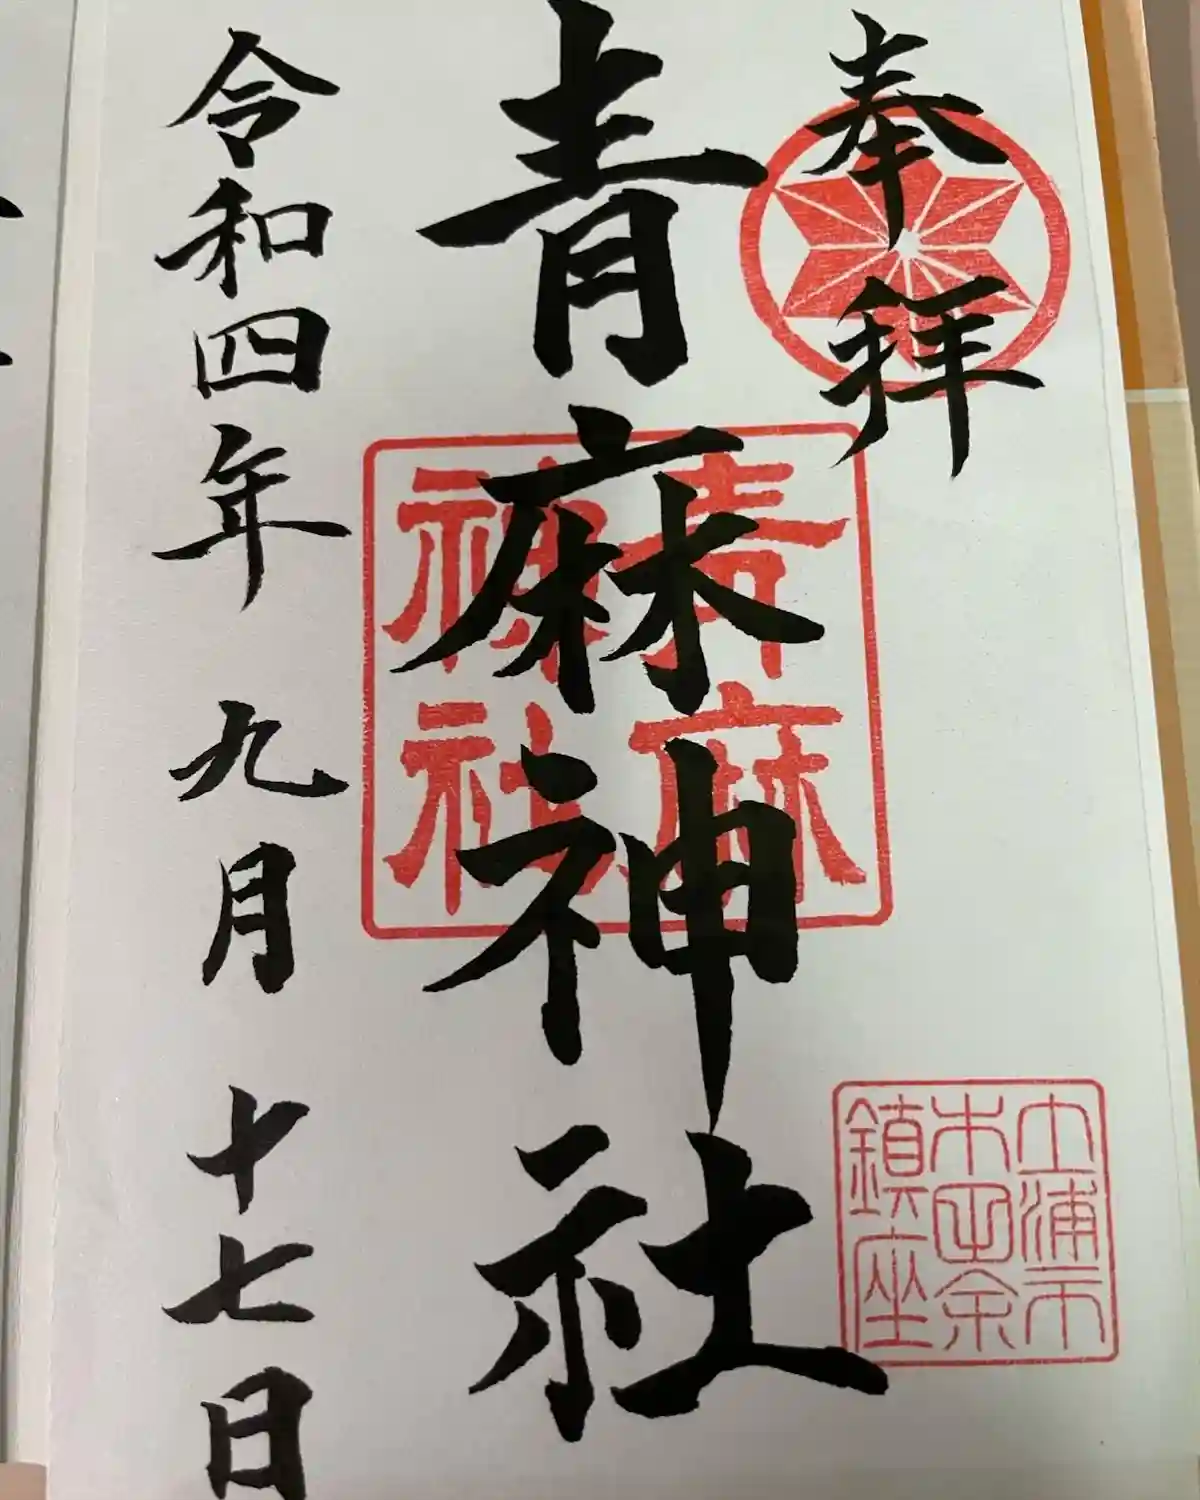 奉拝
青麻神社
青麻
神社
土浦市
木田余
鎮座
令和四年 九月 十七日